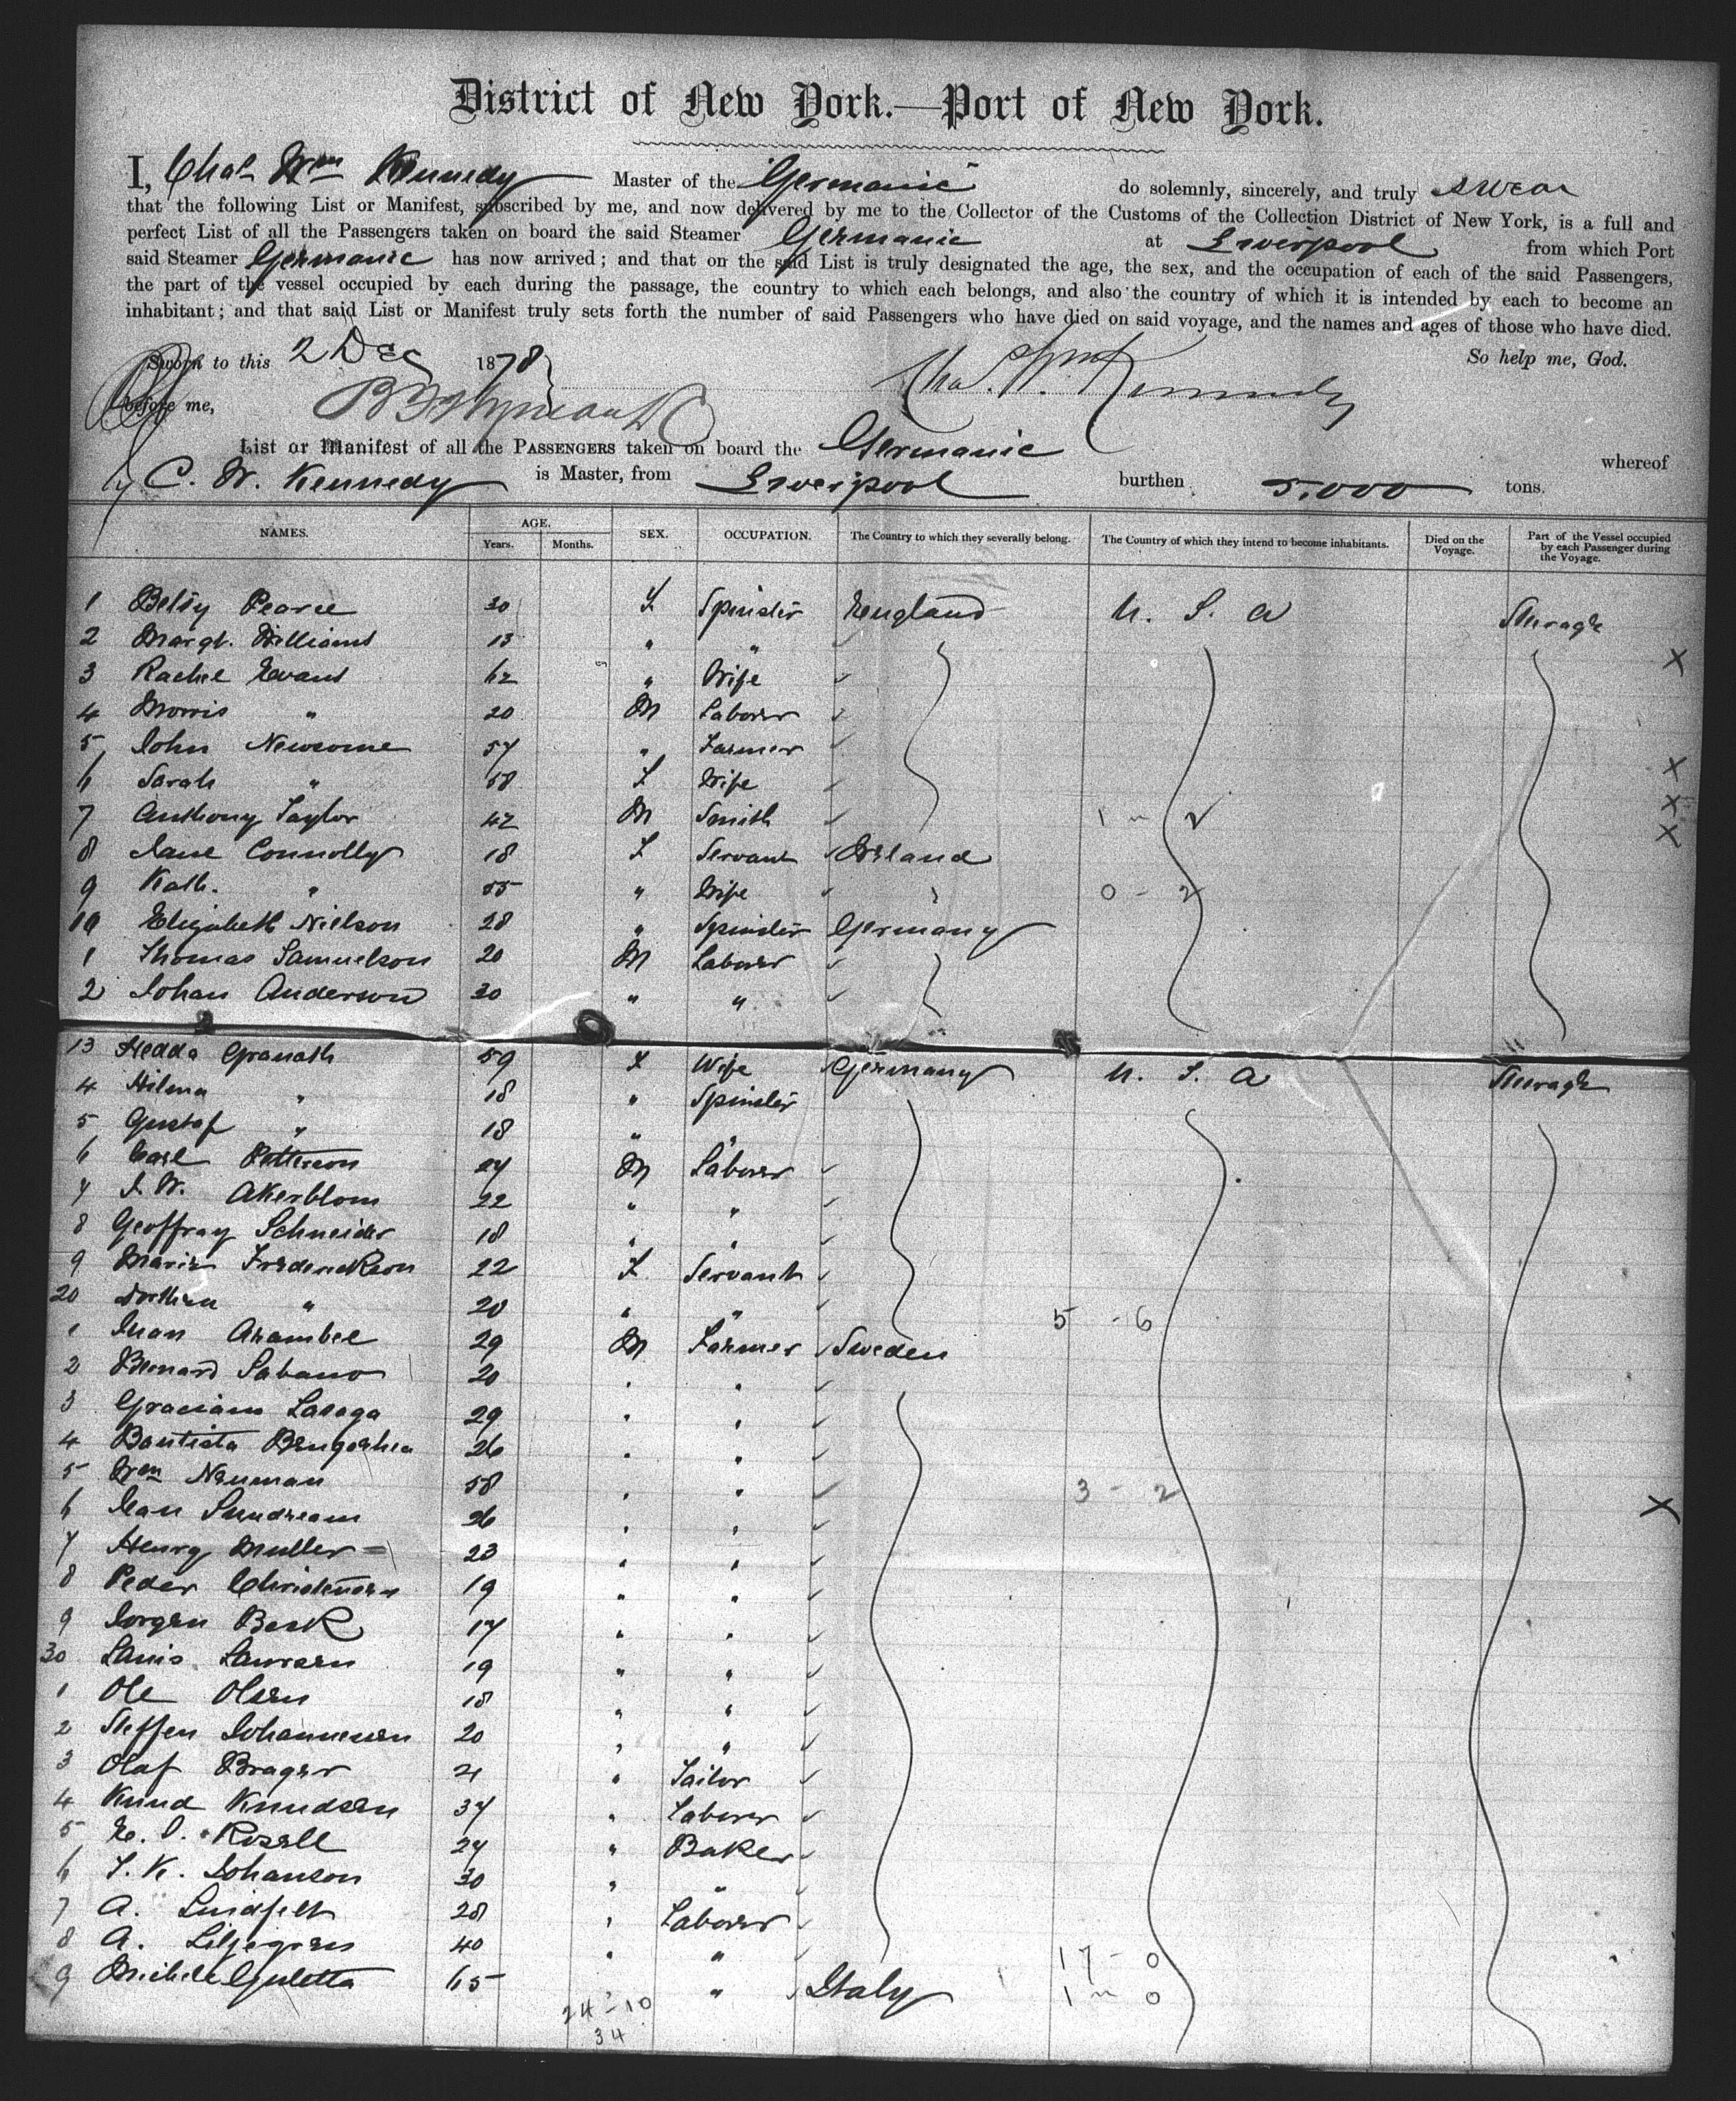 District of New York.—Port of New York.
I, Chas Wm Kennedy Master of the Germanic do solemnly, sincerely, and truly swear
that the following List or Manifest, subscribed by me, and now delivered by me to the Collector of the Customs of the Collection District of New York, is a full and
perfect List of all the Passengers taken on board the said Steamer Germanic at Liverpool from which Port
said Steamer Germanic has now arrived; and that on the said List is truly designated the age, the sex, and the occupation of each of the said Passengers,
the part of the vessel occupied by each during the passage, the country to which each belongs, and also the country of which it is intended by each to become an
inhabitant; and that said List or Manifest truly sets forth the number of said Passengers who have died on said voyage, and the names and ages of those who have died.
So help me, God.
Sworn to this 2 Dec 1878
before me, Chas. Wm Kennedy
List or Manifest of all the PASSENGERS taken on board the Germanic whereof
C. W. Kennedy is Master, from Liverpool burthen 5,000 tons.
NAMES. AGE. Years. Months. SEX. OCCUPATION. The Country to which they severally belong. The Country of which they intend to become inhabitants. Died on the Voyage. Part of the Vessel occupied by each Passenger during the Voyage.
1 Betsy Pearce 30 F Spinster England U. S. A Steerage
2 Margt. Williams 13 " " X
3 Rachel Evans 62 " Wife
4 Morris " 20 M Laborer
5 John Newsome 57 " Farmer
6 Sarah " 58 F Wife X
7 Anthony Taylor 42 M Smith 1 - 2 X
8 Jane Connolly 18 F Servant Ireland X
9 Kath. " 55 " Wife " 0 - 2
10 Elizabeth Nielson 28 " Spinster Germany
1 Thomas Samuelson 20 M Laborer
2 Johan Anderson 30 " "
13 Hedda Granath 59 F Wife Germany U. S. A Steerage
4 Hilma " 18 " Spinster
5 Gustaf " 18 " "
6 Carl Petterson 27 M Laborer
7 J. W. Akerblom 22 " "
8 Geoffray Schneider 18 " "
9 Maria Frederickson 22 F Servant
20 " 20 " " 5 - 6
1 Juan Arambel 29 M Farmer Sweden
2 Bernard Sabano 20 " "
3 Graciano Lasaga 29 " "
4 Bautista 26 " "
5 Wm Neuman 58 " " 3 - 2
6 Jean 26 " " X
7 Henry Muller 23 " "
8 Peder Christensen 19 " "
9 Jorgen Beck 17 " "
30 Lauis Laursen 19 " "
1 Ole Olsen 18 " "
2 Steffen Johannesen 20 " "
3 Olaf Brager 21 " Tailor
4 Knud Knudsen 37 " Laborer
5 Rosell 27 " Baker
6 J. K. Johanson 30 " "
7 A. Lindfelt 28 " Laborer
8 A. Liljegren 40 " " 17 - 0
9 Michele Guletta 65 " Italy 1 - 0
24 - 10
34